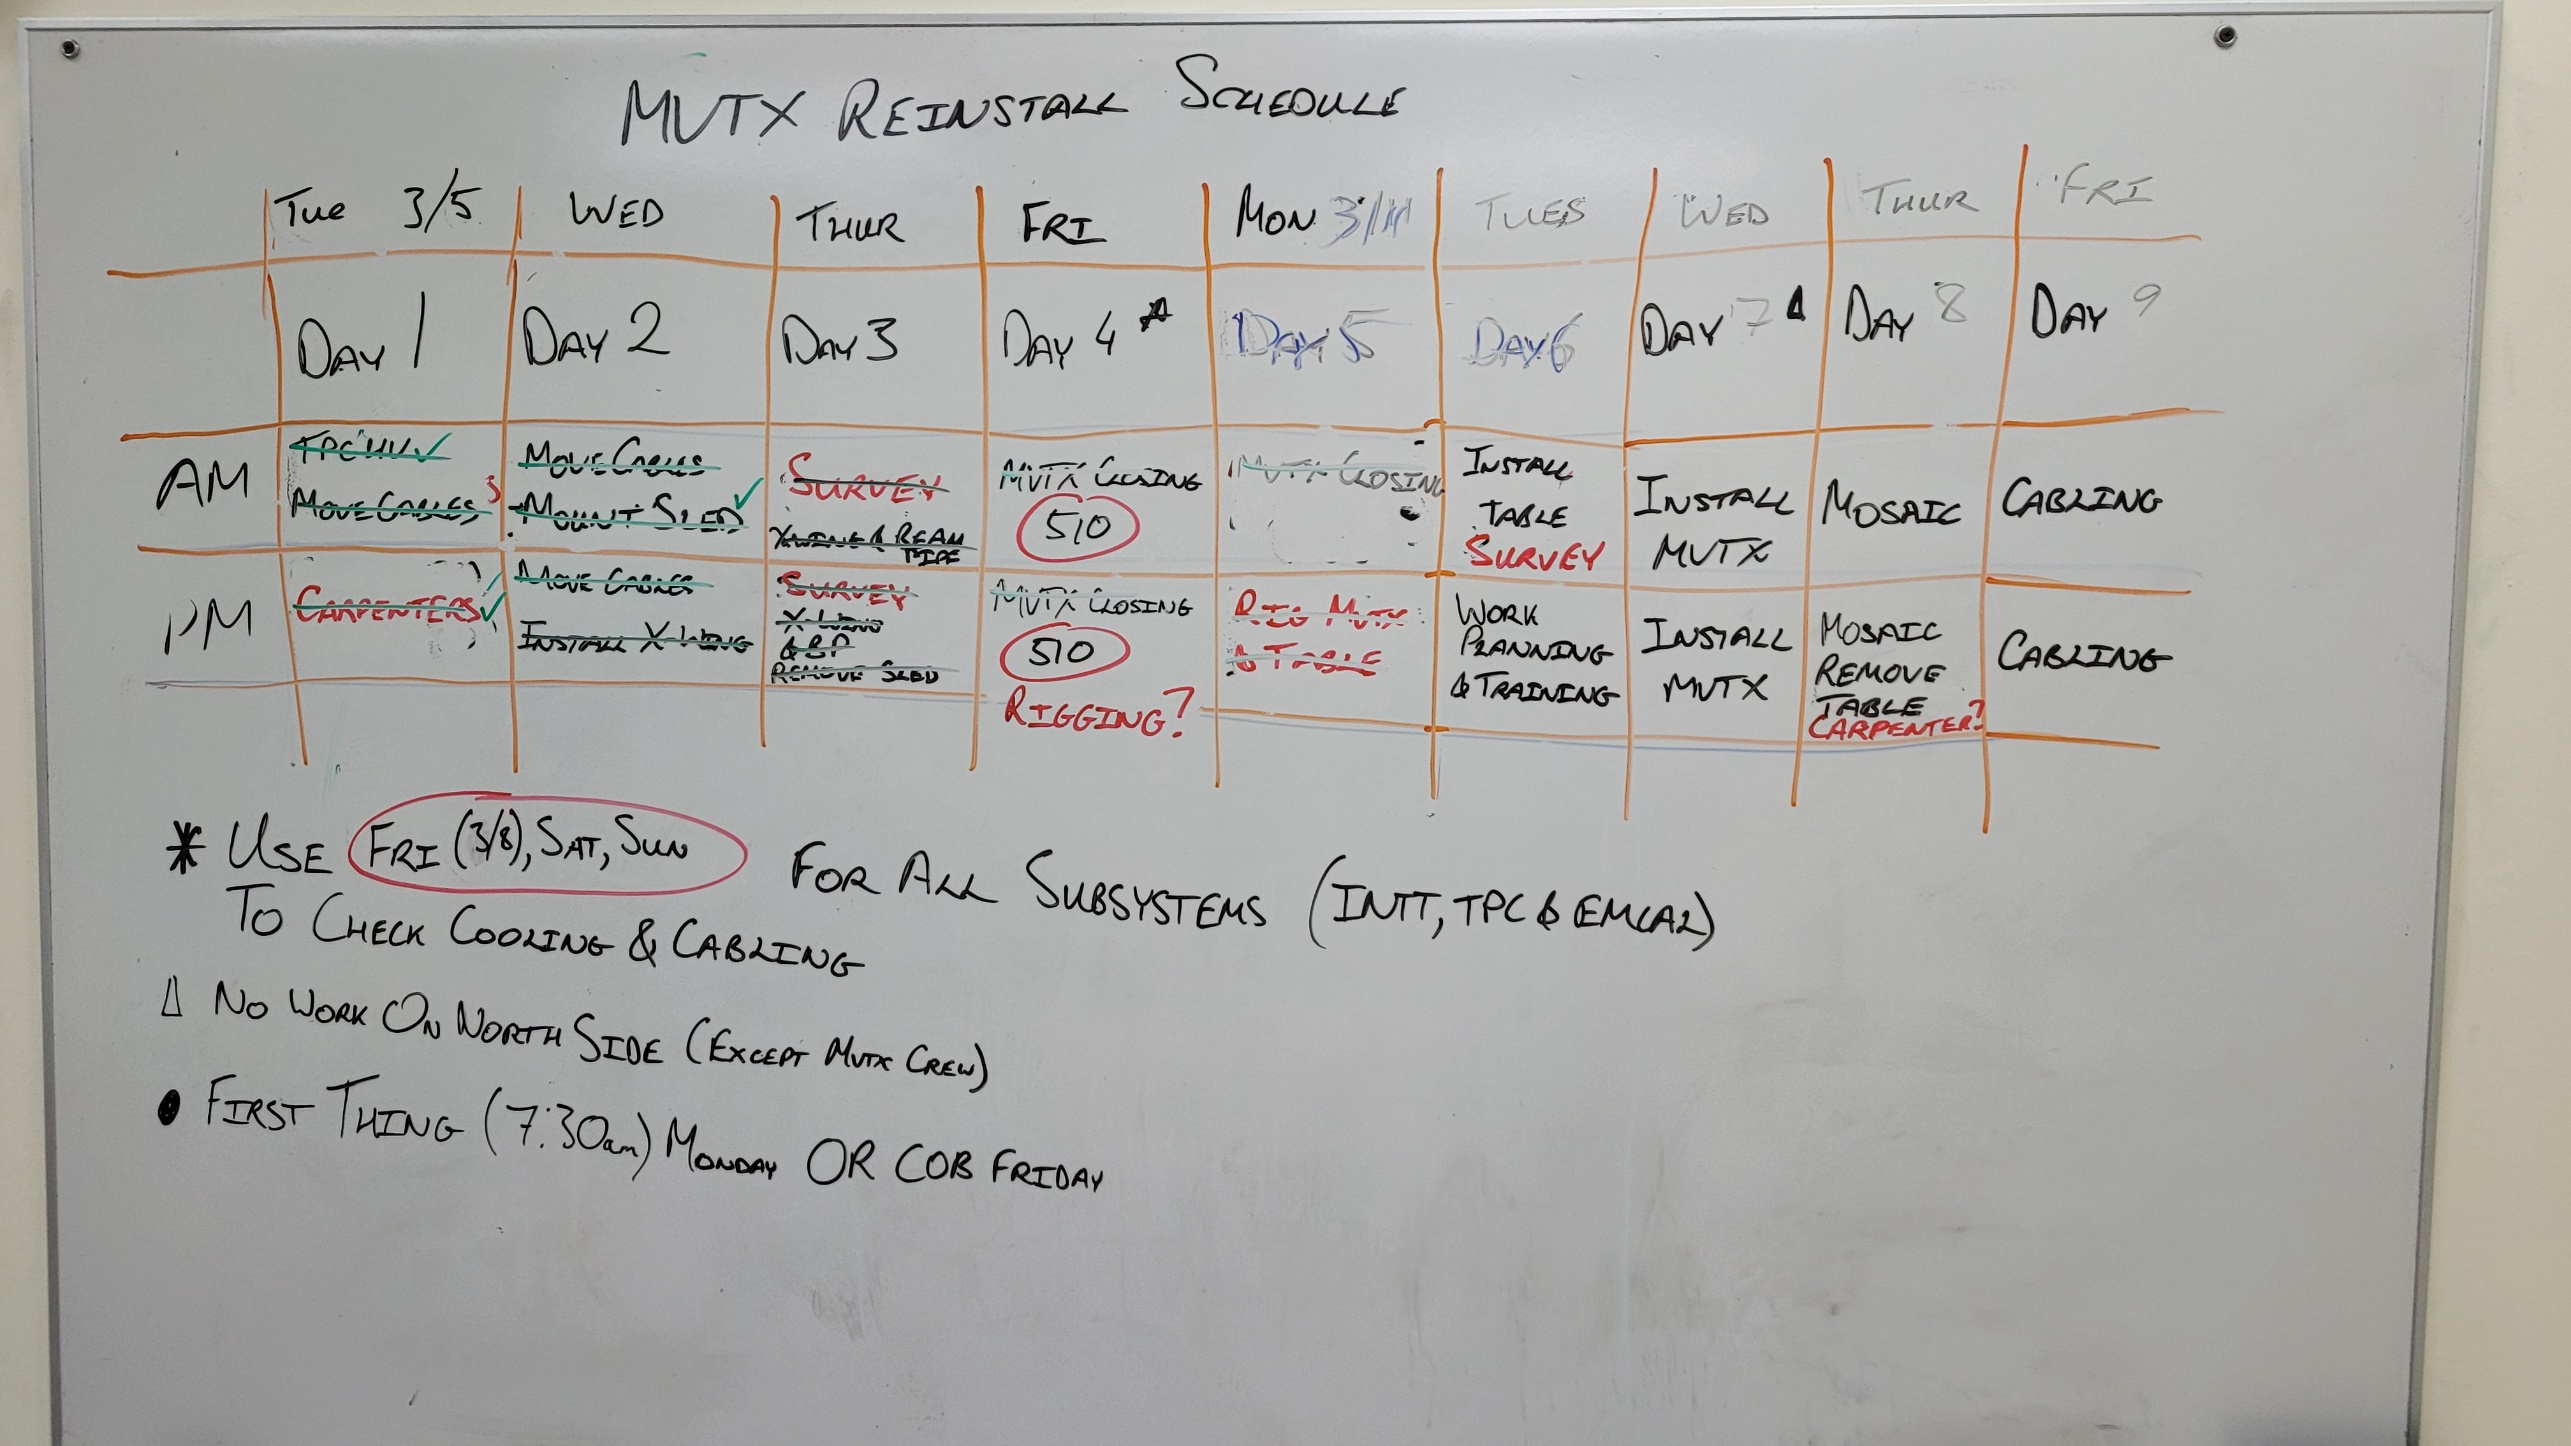 MVTX REINSTALL SCHEDULE
TUE 3/5 WED THUR FRI MON 3/11 TUES WED THUR FRI
DAY 1 DAY 2 DAY 3 DAY 4 * DAY 5 DAY 6 DAY 7 Δ DAY 8 DAY 9
AM
TPC HV ✓
MOVE CABLES
MOVE CABLES
MOUNT SLED ✓
SURVEY
X-WING & BEAM
PIPE
MVTX CLOSING
510
MVTX CLOSING
INSTALL
TABLE
SURVEY
INSTALL
MVTX
MOSAIC
CABLING
PM
CARPENTERS ✓
MOVE CABLES
INSTALL X-WING
SURVEY
X-WING
& BP
REMOVE SLED
MVTX CLOSING
510
RIGGING?
RIG MVTX
& TABLE
WORK
PLANNING
& TRAINING
INSTALL
MVTX
MOSAIC
REMOVE
TABLE
CARPENTER?
CABLING
* USE FRI (3/8), SAT, SUN FOR ALL SUBSYSTEMS (INTT, TPC & EMCAL)
TO CHECK COOLING & CABLING
Δ NO WORK ON NORTH SIDE (EXCEPT MVTX CREW)
● FIRST THING (7:30am) MONDAY OR COB FRIDAY